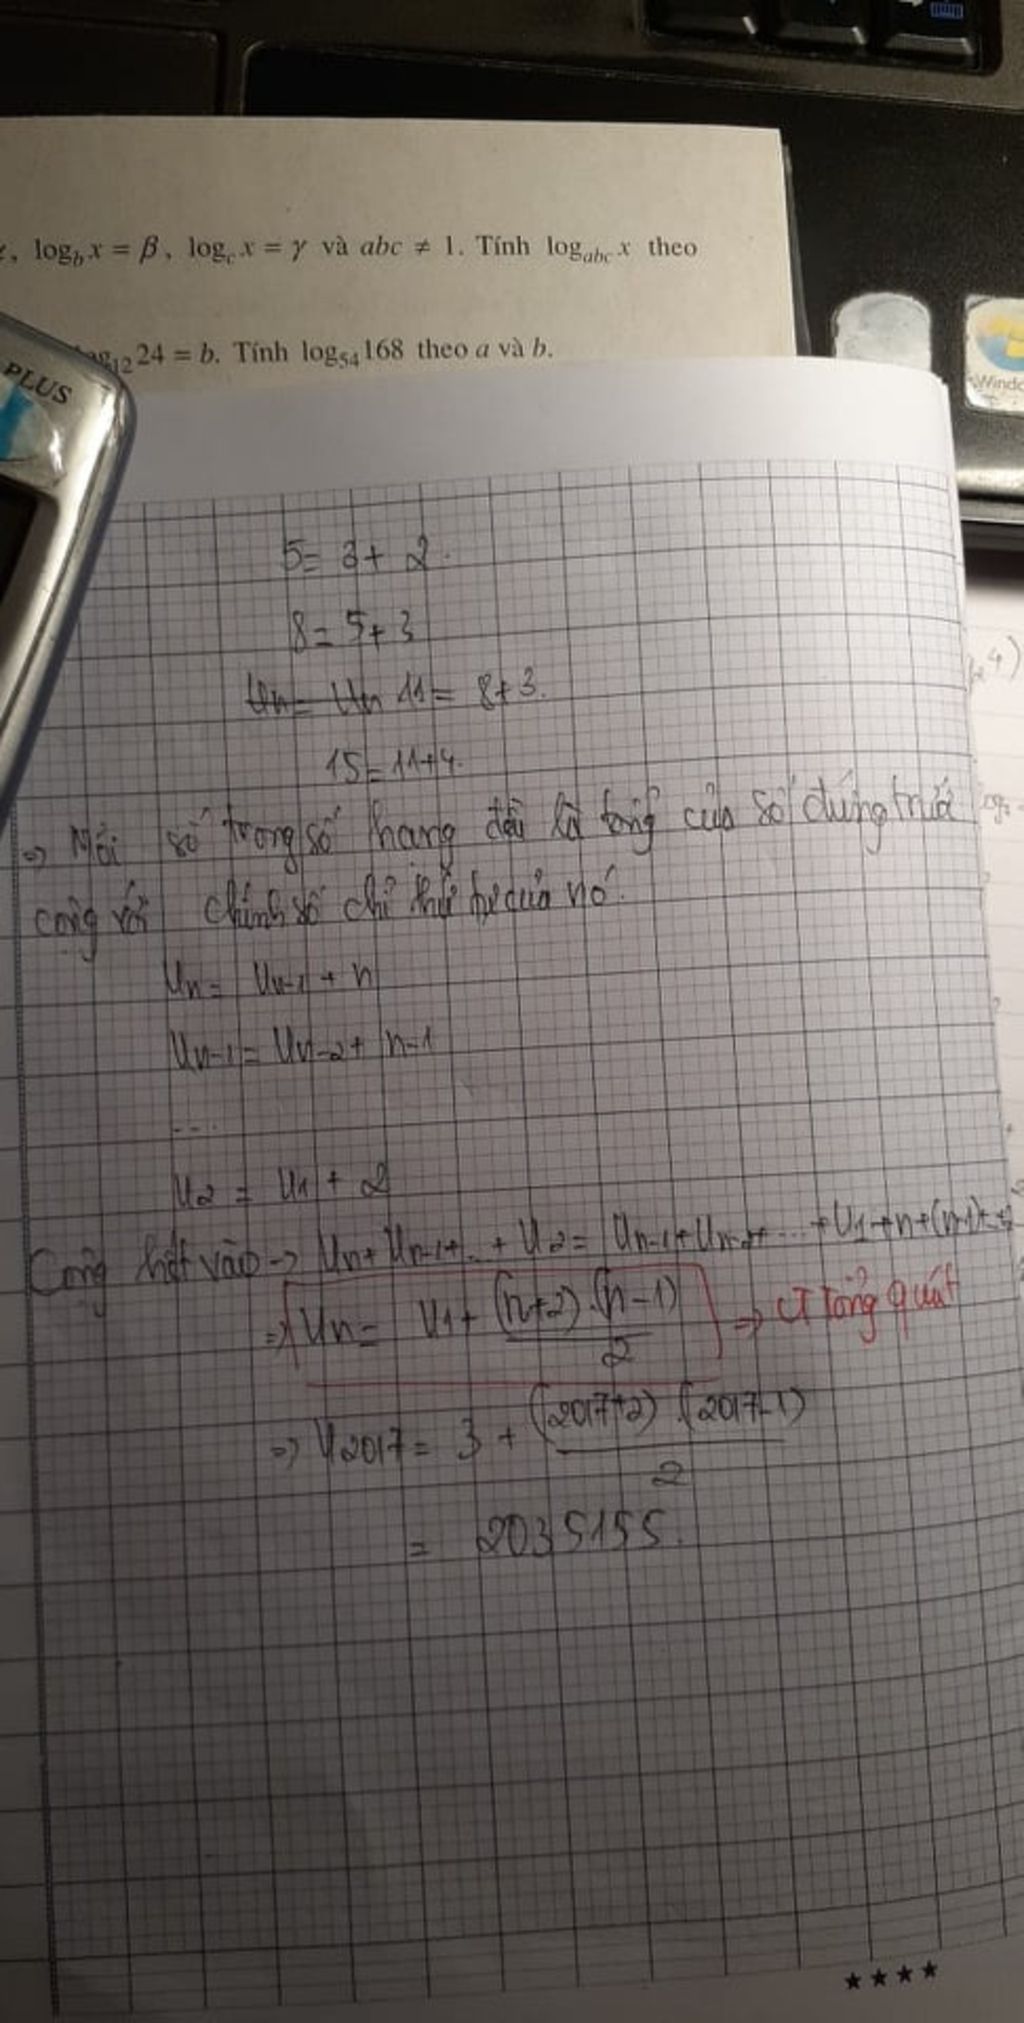 , log_b x = β, log_c x = γ và abc ≠ 1. Tính log_abc x theo
PLUS
12 24 = b. Tính log_54 168 theo a và b.
Windo
5 = 3 + 2.
8 = 5 + 3
Un = Un 11 = 8 + 3.
15 = 11 + 4.
=> Mỗi số trong số hạng đều là tổng của số đứng trước
cộng với chính số chỉ thứ tự của nó.
Un = Un-1 + n
Un-1 = Un-2 + n-1
....
U2 = U1 + 2
Cộng hết vào → Un + Un-1 + .. + U2 = Un-1 + Un-2 + ... + U1 + n + (n-1) +
=> Un = U1 + (n+2).(n-1)/2 => CT tổng quát
=> U2017 = 3 + (2017+2).(2017-1)/2
= 2035155.
★★★★